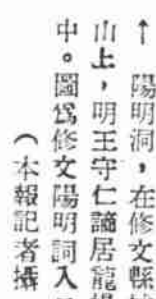 ↑ 陽明洞，在修文縣
山上，明王守仁謫居龍
中。圖爲修文陽明詞入
（本報記者攝